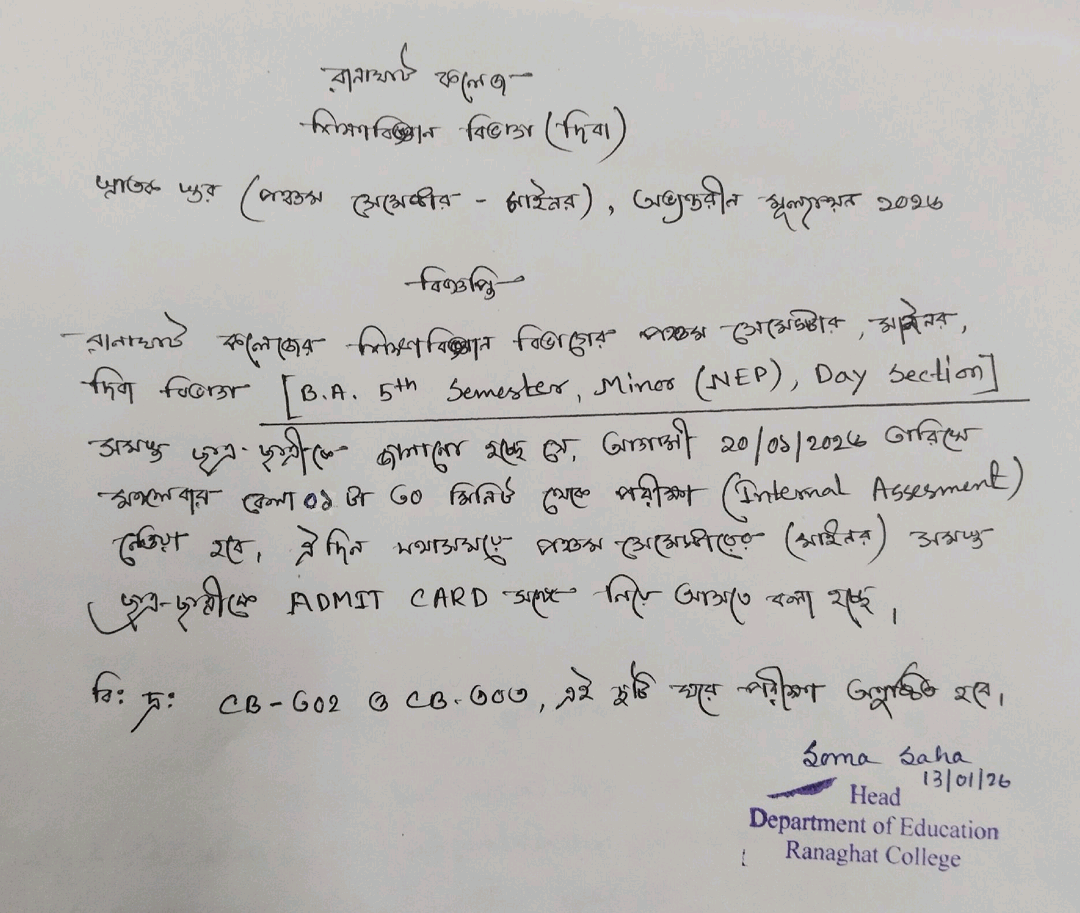 রানাঘাট কলেজ
শিক্ষাবিজ্ঞান বিভাগ (দিবা)
স্নাতক স্তর (পঞ্চম সেমেস্টার - মাইনর), অভ্যন্তরীন মূল্যায়ন ২০২৬
বিজ্ঞপ্তি
রানাঘাট কলেজের শিক্ষাবিজ্ঞান বিভাগের পঞ্চম সেমেস্টার, মাইনর,
দিবা বিভাগ [B.A. 5th Semester, Minor (NEP), Day Section]
সমস্ত ছাত্র-ছাত্রীকে জানানো হচ্ছে যে, আগামী ২০/০১/২০২৬ তারিখে
মঙ্গলবার বেলা ০১ টা ৩০ মিনিট থেকে পরীক্ষা (Internal Assesment)
নেওয়া হবে। ঐ দিন যথাসময়ে পঞ্চম সেমেস্টারের (মাইনর) সমস্ত
ছাত্র-ছাত্রীকে ADMIT CARD সঙ্গে নিয়ে আসতে বলা হচ্ছে।
বি: দ্র: CB-৩০২ ও CB-৩০৩, এই দুটি ঘরে পরীক্ষা অনুষ্ঠিত হবে।
Soma Saha
13/01/26
Head
Department of Education
Ranaghat College